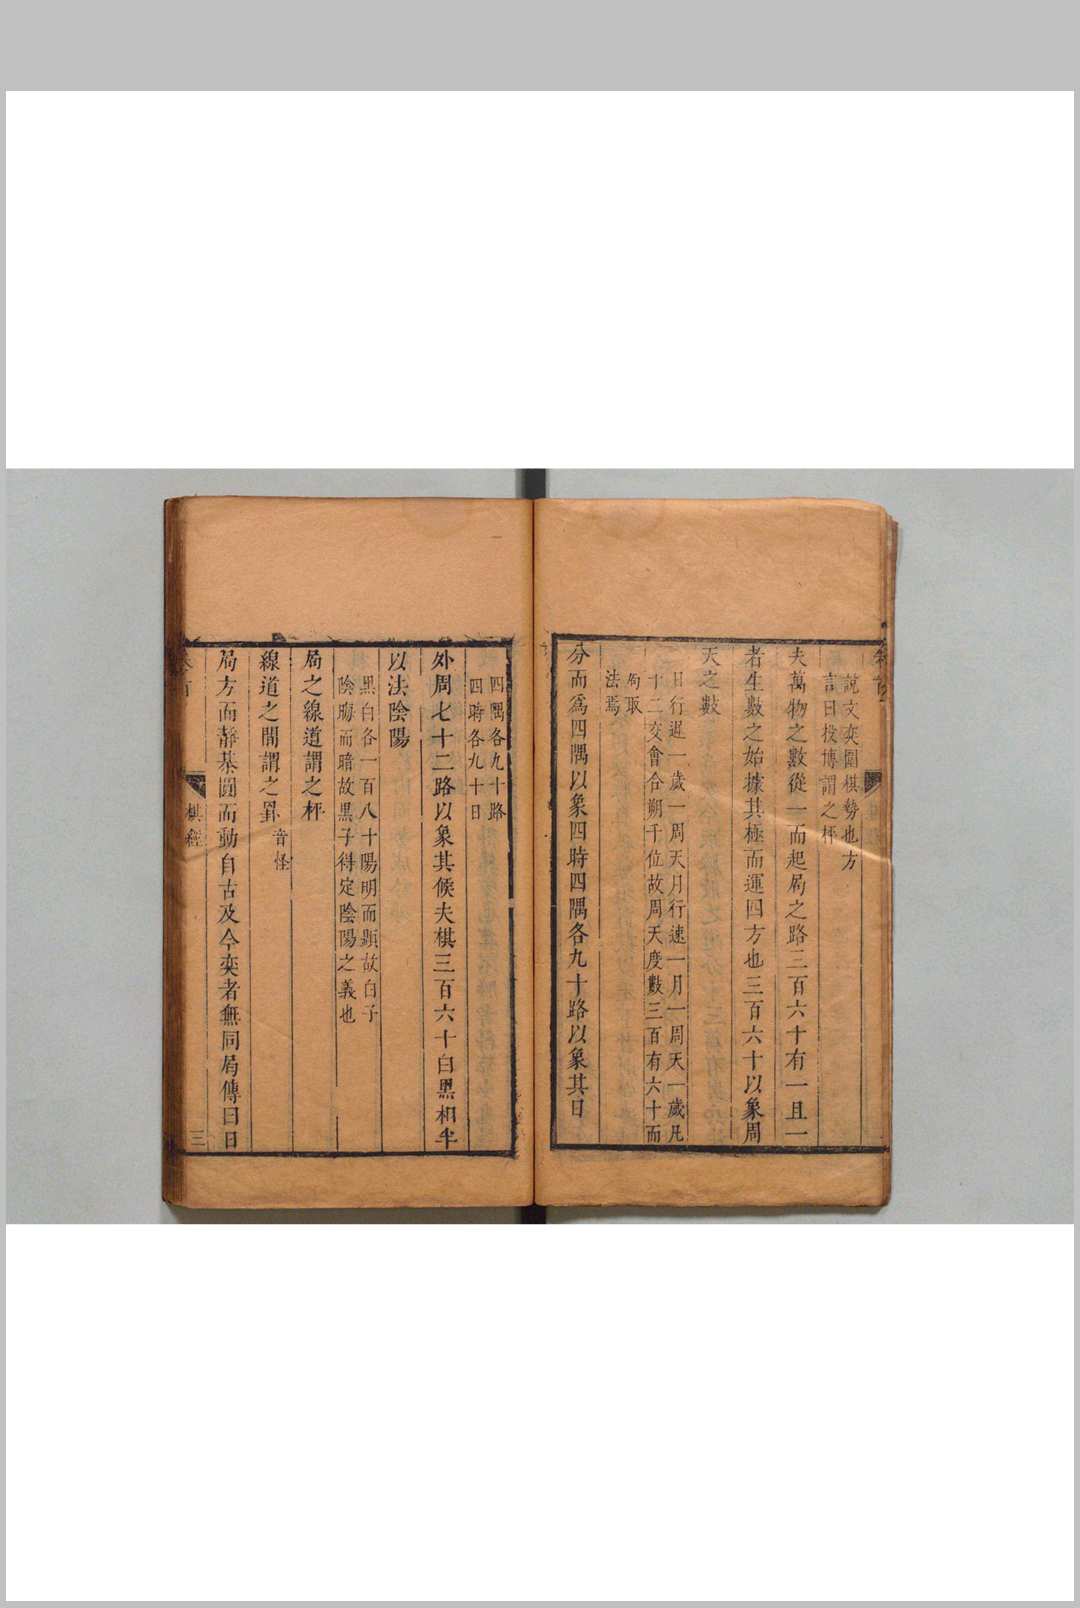 說文奕圍棋勢也方
言曰投博謂之枰
夫萬物之數從一而起局之路三百六十有一且一
者生數之始據其極而運四方也三百六十以象周
天之數
日行遲一歲一周天月行速一月一周天一歲凡
十二交會合朔于位故周天度數三百有六十而
局取
法焉
分而爲四隅以象四時四隅各九十路以象其日
四隅各九十路
四時各九十日
外周七十二路以象其候夫棋三百六十白黑相半
以法陰陽
黑白各一百八十陽明而顯故白子
陰晦而暗故黑子得定陰陽之義也
局之線道謂之枰
線道之間謂之罫音怪
局方而靜棊圓而動自古及今奕者無同局傳曰日
棋經
三